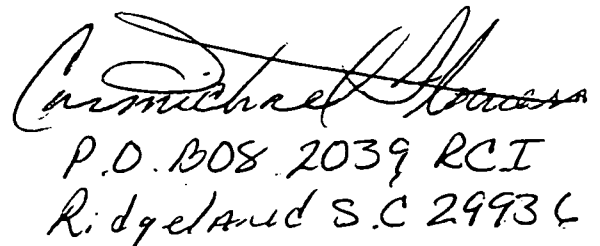 Carmichael Flowers
P.O. BOX 2039 RCI
Ridgeland S.C 29936